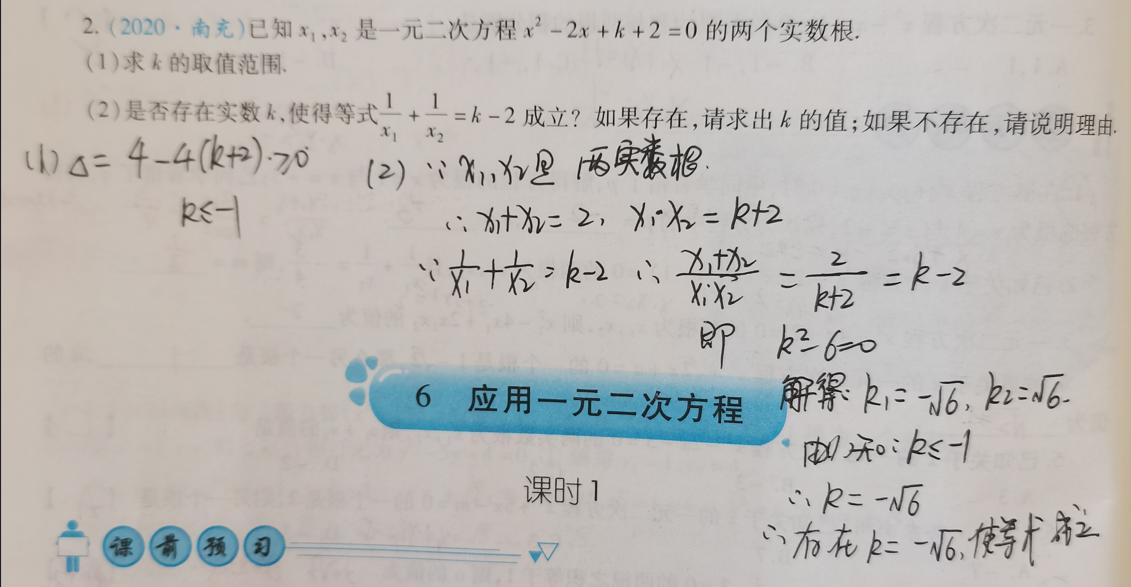 2.(2020·南充)已知 x₁,x₂ 是一元二次方程 x²-2x+k+2=0 的两个实数根.
(1)求 k 的取值范围.
(2)是否存在实数 k,使得等式 1/x₁ + 1/x₂ = k-2 成立? 如果存在,请求出 k 的值;如果不存在,请说明理由.
(1) Δ= 4-4(k+2)≥0
k≤-1
(2) ∵ x₁,x₂是 两实数根.
∴ x₁+x₂=2, x₁·x₂=k+2
∵ 1/x₁ + 1/x₂ = k-2 ∴ (x₁+x₂)/(x₁·x₂) = 2/(k+2) = k-2
即 k²-6=0
解得: k₁=-√6, k₂=√6.
由(1)知: k≤-1
∴ k=-√6
∴ 存在 k=-√6, 使等式成立
6 应用一元二次方程
课时1
课前预习